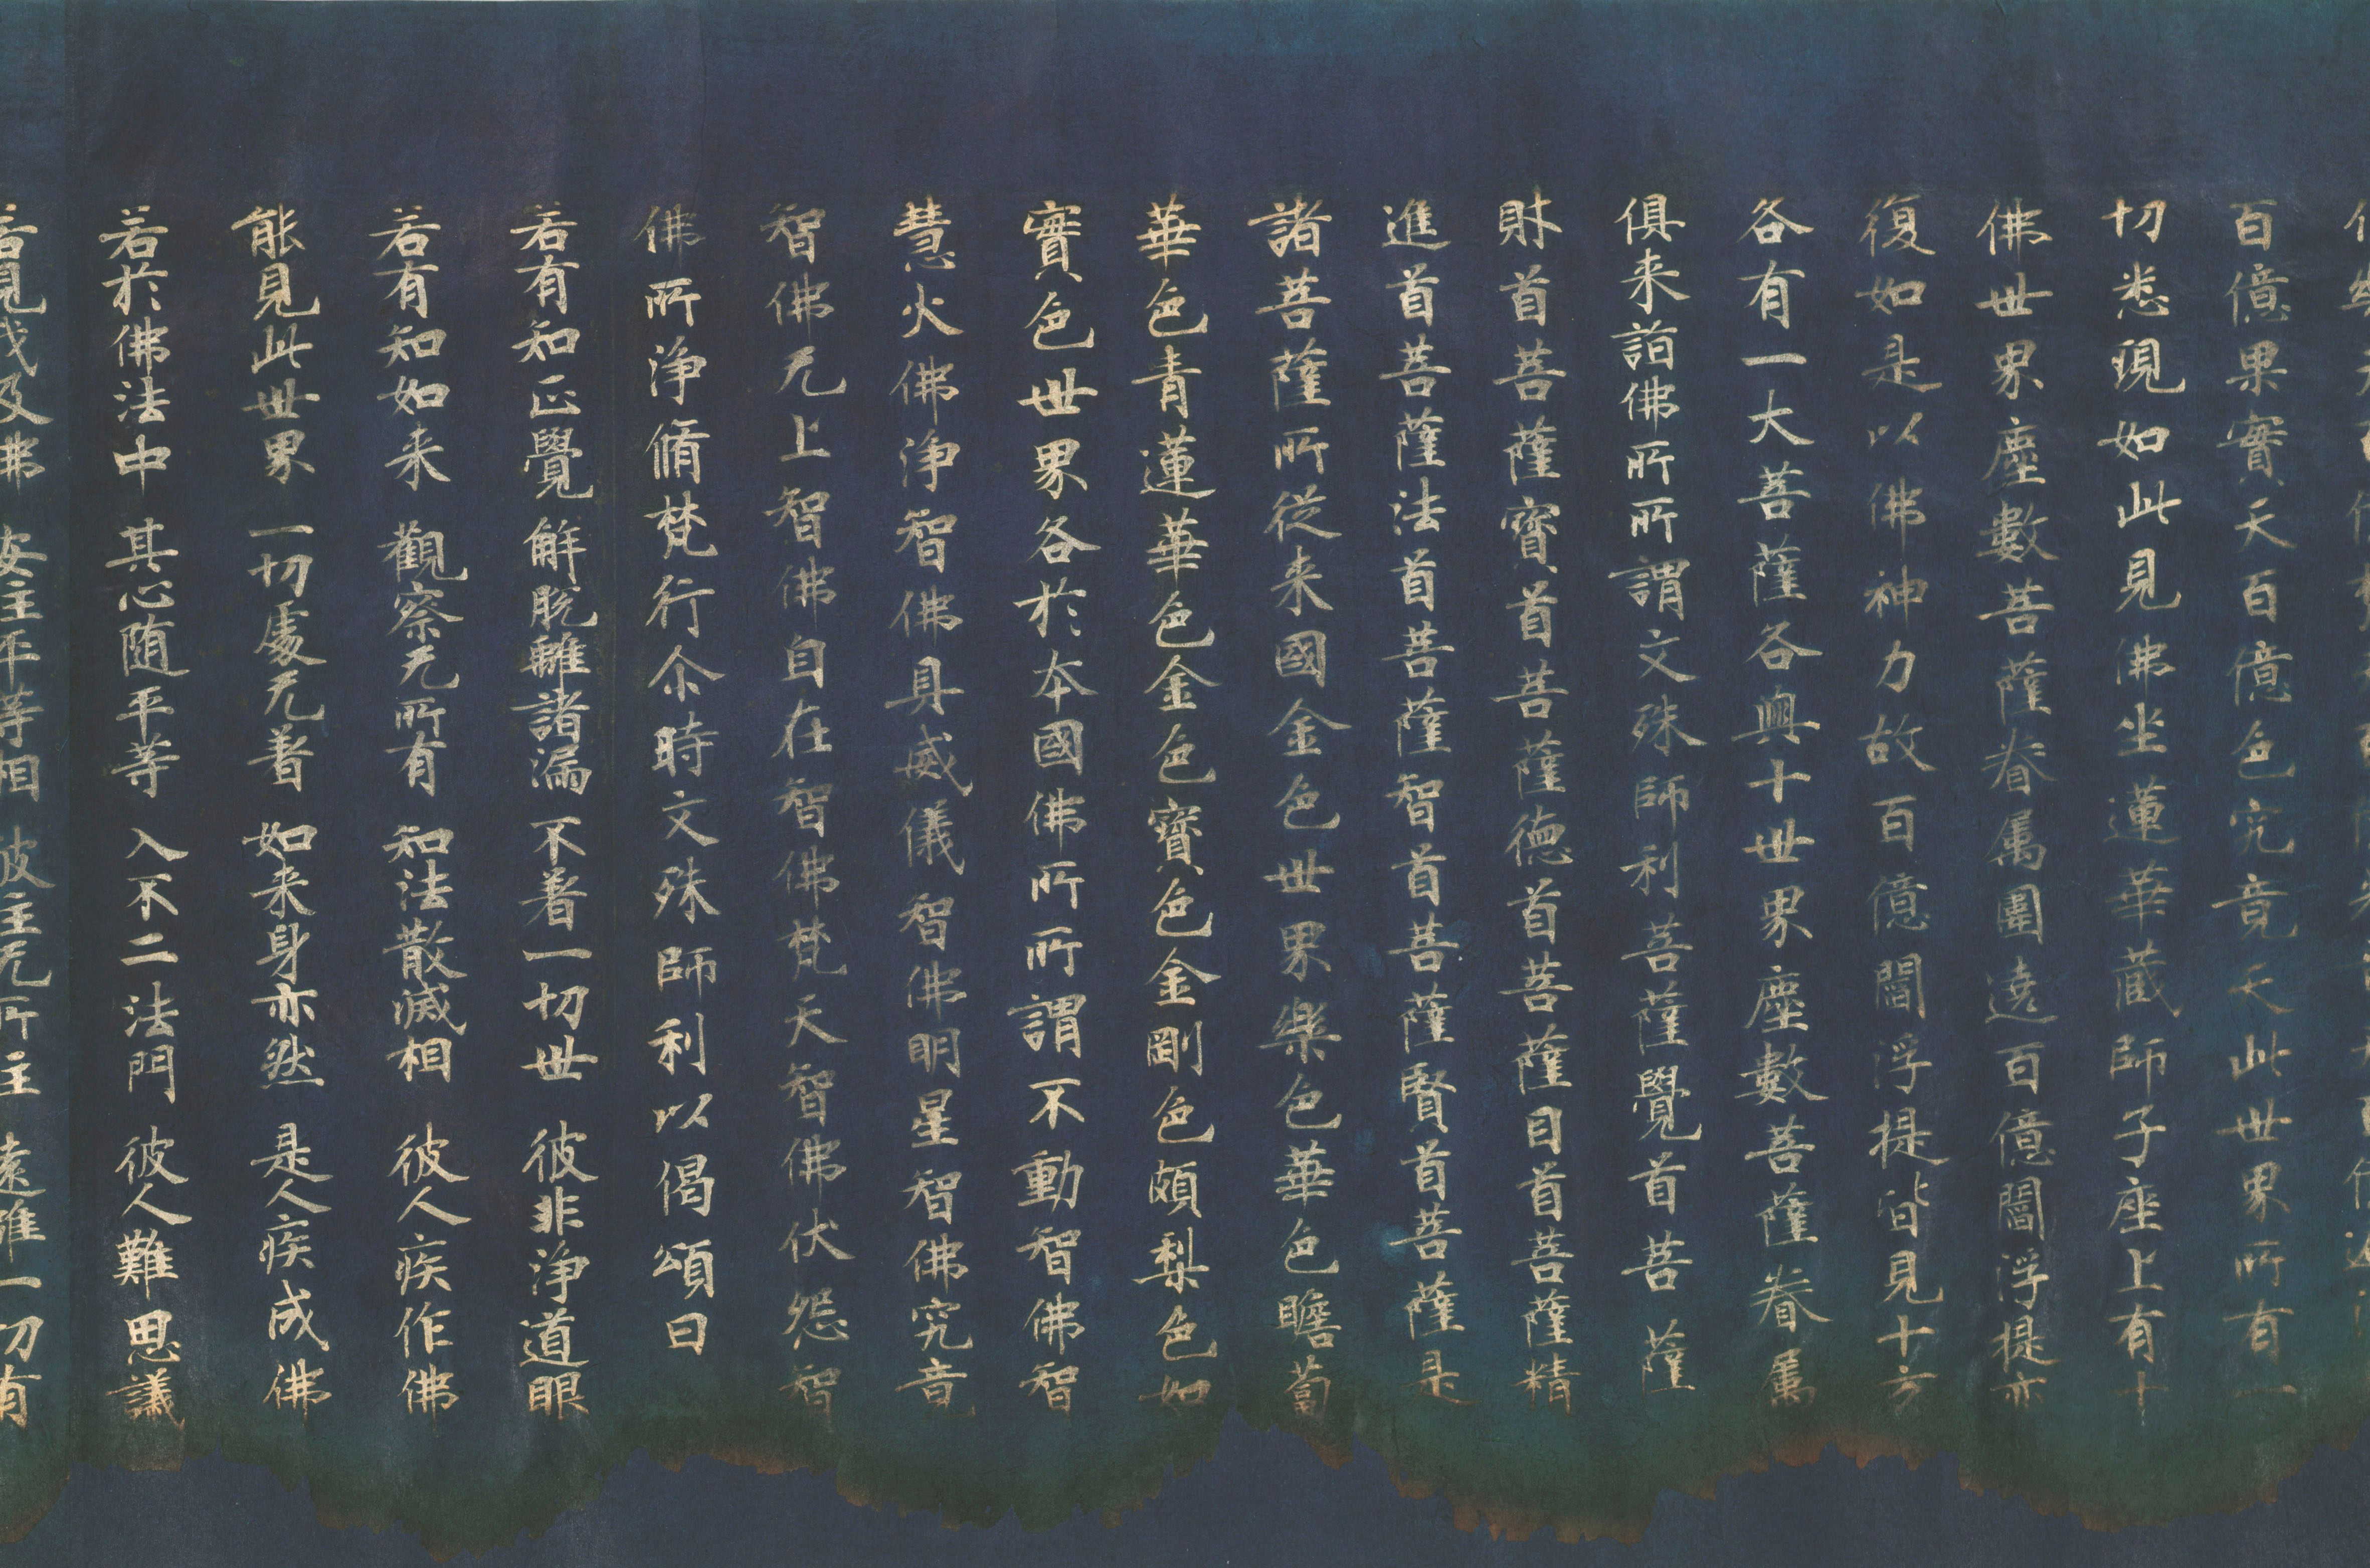 百億果實天百億色究竟天此世界所有一
切悉現如此見佛坐蓮華蔵師子座上有十
佛世界塵數菩薩眷属圍遶百億閻浮提亦
復如是以佛神力故百億閻浮提皆見十方
各有一大菩薩各興十世界塵數菩薩眷属
俱来詣佛所所謂文殊師利菩薩覺首菩薩
財首菩薩寳首菩薩德首菩薩目首菩薩精
進首菩薩法首菩薩智首菩薩賢首菩薩是
諸菩薩所従来國金色世界樂色華色瞻蔔
華色青蓮華色金色寳色金剛色頗梨色如
實色世界各於本國佛所所謂不動智佛智
慧火佛浄智佛具威儀智佛明星智佛究竟
智佛无上智佛自在智佛梵天智佛伏怨智
佛所浄脩梵行尒時文殊師利以偈頌曰
若有知正覺 解脱離諸漏 不著一切世 彼非浄道眼
若有知如来 觀察无所有 知法散滅相 彼人疾作佛
能見此世界 一切處无著 如来身亦然 是人疾成佛
若於佛法中 其心随平等 入不二法門 彼人難思議
若見我及佛 安住平等相 彼住无所住 遠離一切有